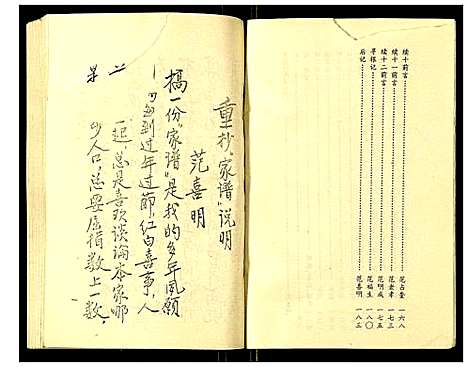 续十前言……范占奎 一六八
续十一前言……范老孝 一七三
续十二前言……范明成 一七五
寻根记……范福生 一八〇
后记……范喜明 一八三
重抄“家谱”说明
范喜明
搞一份“家谱”是我的多年夙愿
每到过年过節,红白喜事,人
一起,总是喜欢谈论本家哪
少人口,总要屈指数上一数,